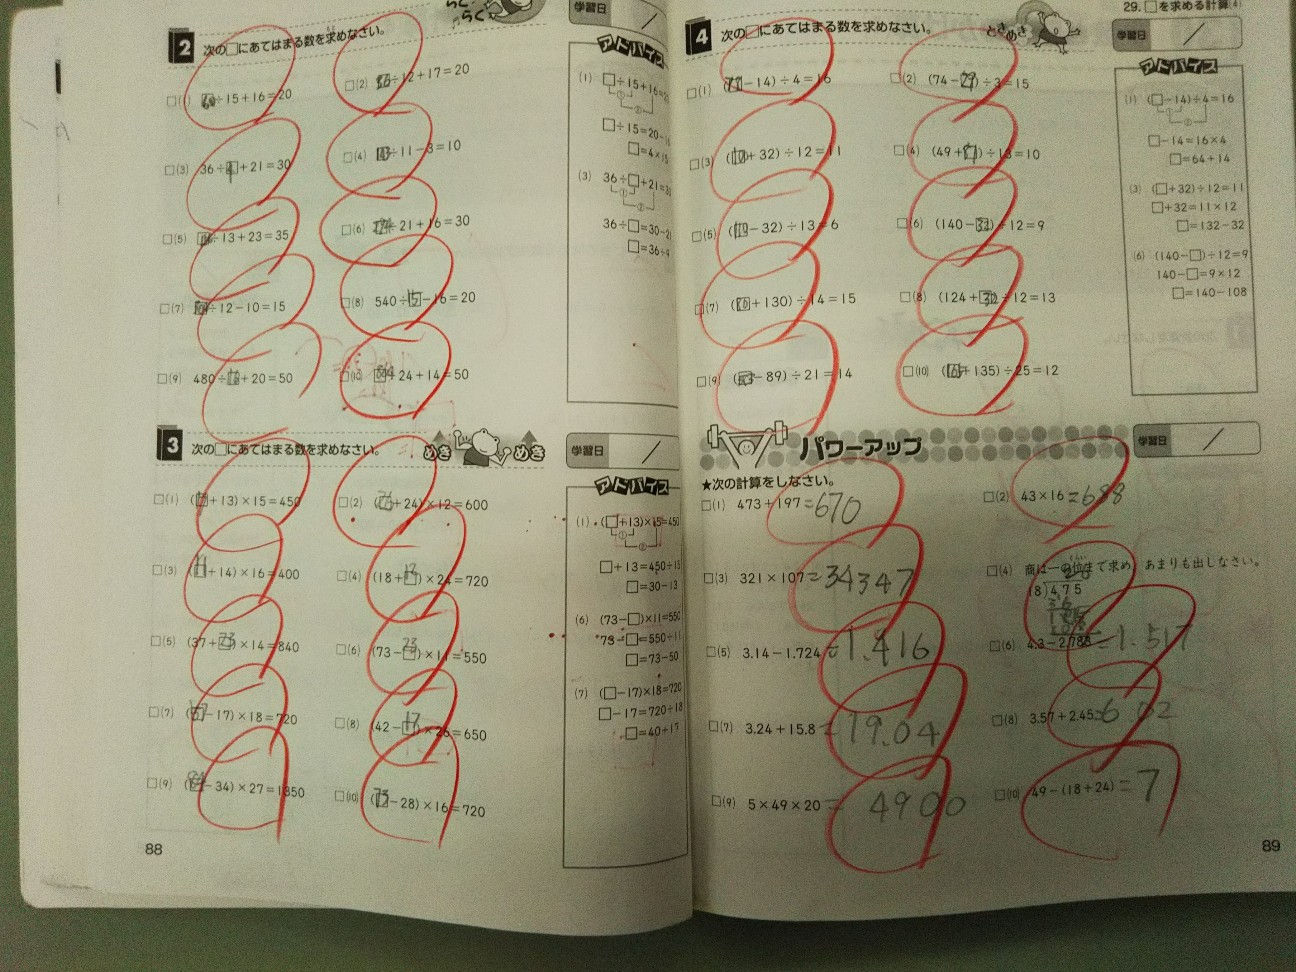 らく
らく
学習日
2 次の□にあてはまる数を求めなさい。
□(1) 60÷15+16=20
□(2) 36÷12+17=20
□(3) 36÷4+21=30
□(4) 143÷11-3=10
□(5) □÷13+23=35
□(6) □÷21+16=30
□(7) □÷12-10=15
□(8) 540÷15-16=20
□(9) 480÷16+20=50
□(10) □÷24+14=50
アドバイス
(1) □÷15+16=20
① ②
□÷15=20-16
□=4×15
(3) 36÷□+21=30
① ②
36÷□=30-21
□=36÷9
3 次の□にあてはまる数を求めなさい。
めき めき
学習日
□(1) (17+13)×15=450
□(2) (26+24)×12=600
□(3) (11+14)×16=400
□(4) (18+12)×24=720
□(5) (37+23)×14=840
□(6) (73-23)×11=550
□(7) (57-17)×18=720
□(8) (42-17)×26=650
□(9) (84-34)×27=1350
□(10) (73-28)×16=720
アドバイス
(1) (□+13)×15=450
① ②
□+13=450÷15
□=30-13
(6) (73-□)×11=550
73-□=550÷11
□=73-50
(7) (□-17)×18=720
□-17=720÷18
□=40+17
88
29. □を求める計算(4)
4 次の□にあてはまる数を求めなさい。
ときめき
学習日
□(1) (□-14)÷4=16
□(2) (74-29)÷3=15
□(3) (100+32)÷12=11
□(4) (49+81)÷13=10
□(5) (110-32)÷13=6
□(6) (140-32)÷12=9
□(7) (80+130)÷14=15
□(8) (124+32)÷12=13
□(9) (□-89)÷21=14
□(10) (165+135)÷25=12
アドバイス
(1) (□-14)÷4=16
① ②
□-14=16×4
□=64+14
(3) (□+32)÷12=11
□+32=11×12
□=132-32
(6) (140-□)÷12=9
140-□=9×12
□=140-108
パワーアップ
学習日
★次の計算をしなさい。
□(1) 473+197=670
□(2) 43×16=688
□(3) 321×107=34347
□(4) 商は一の位まで求め、あまりも出しなさい。
18)475
□(5) 3.14-1.724=1.416
□(6) 4.3-2.788=1.517
□(7) 3.24+15.8=19.04
□(8) 3.57+2.45=6.02
□(9) 5×49×20=4900
□(10) 49-(18+24)=7
89